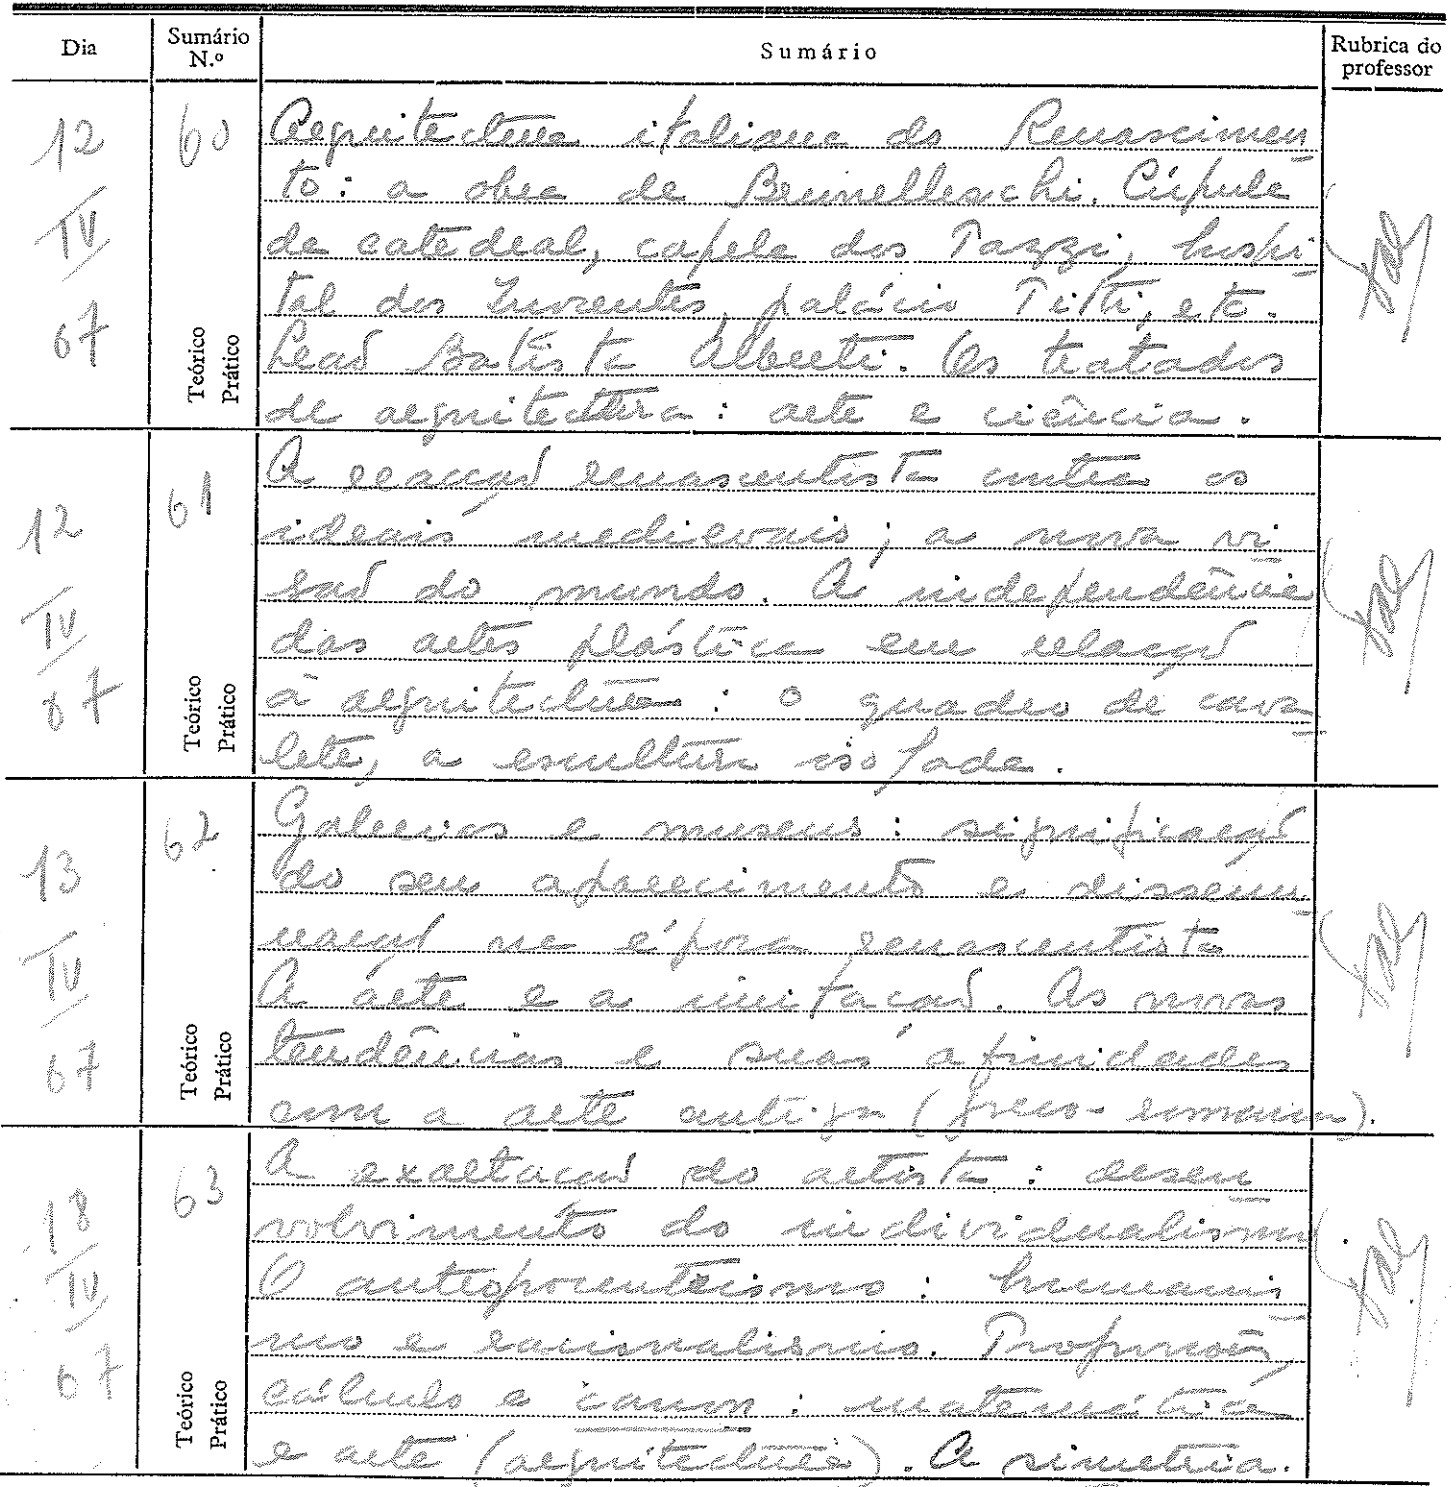 Dia Sumário N.º Sumário Rubrica do professor
12 IV 67
60
Teórico Prático
Arquitectura italiana do Renascimen-
to: a obra de Brunelleschi. Cúpula
da catedral, capela dos Pazzi, hospi-
tal dos Inocentes, palácio Pitti, etc.
Leaõ Batista Alberti. Os tratados
de arquitectura: arte e ciência.
12 IV 67
61
Teórico Prático
A reacçaõ renascentista contra os
ideais medievais; a nova vi-
saõ do mundo. A independência
das artes plástica em relaçaõ
à arquitectura: o quadro de cava-
lete, a escultura isolada.
13 IV 67
62
Teórico Prático
Galerias e museus: significaçaõ
do seu aparecimento e dissemi-
naçaõ na época renascentista
A arte e a imitaçaõ. As novas
tendências e suas afinidades
com a arte antiga (greco-romana).
18 IV 67
63
Teórico Prático
A exaltaçaõ do artista: desen-
volvimento do individualismo
O antropocentrismo: humanis-
mo e racionalismo. Proporçaõ,
cálculo e canon: matemática
e arte (arquitectura). A simetria.